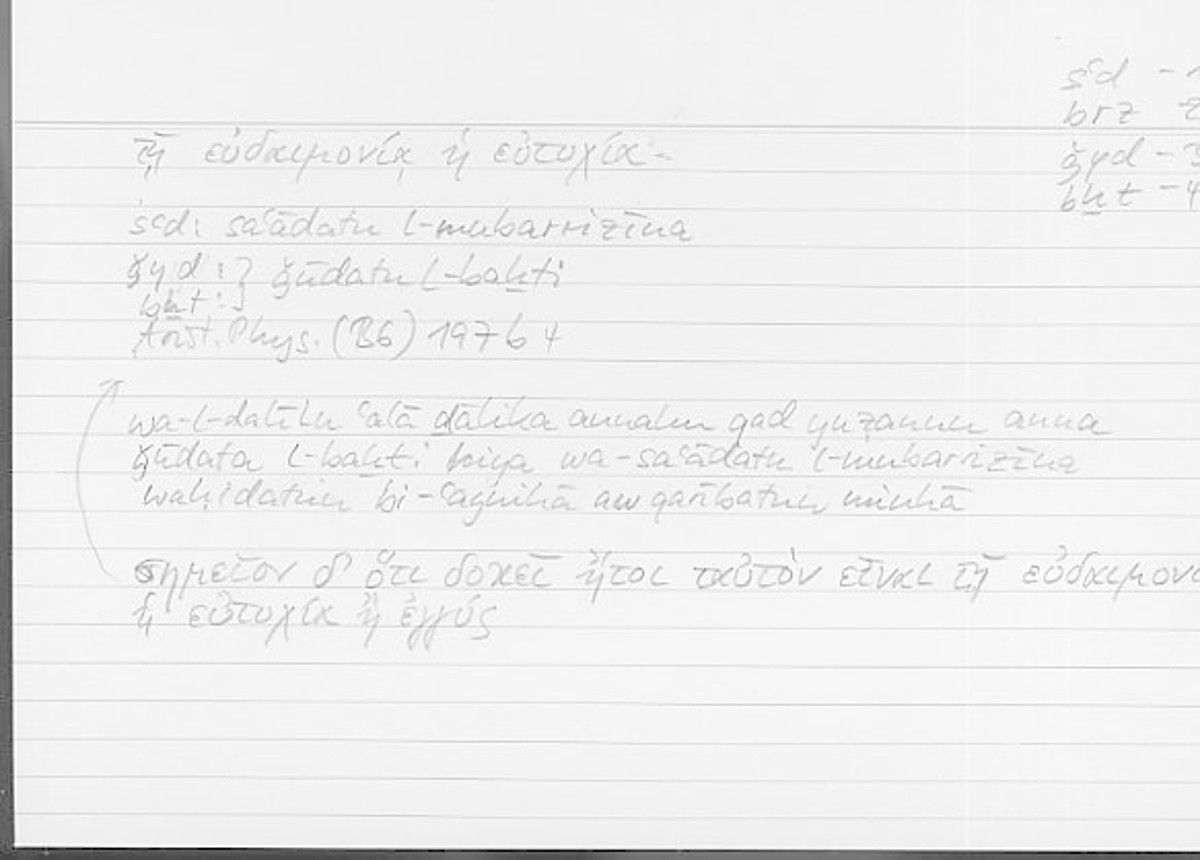 sʿd - 1
brz
ǧyd - 3
bḫt - 4
τῇ εὐδαιμονίᾳ ἡ εὐτυχία -
sʿd: saʿādatu l-mubarrizīna
ǧyd :} ǧūdatu l-baḫti
bḫt :}
Arist. Phys. (B6) 197 b 4
wa-l-dalīlu ʿalā ḏālika annahu qad yuẓannu anna
ǧūdata l-baḫti hiya wa-saʿādatu l-mubarrizīna
wāḥidatun bi-ʿaynihā aw qarībatun minhā
σημεῖον δ' ὅτι δοκεῖ ἤτοι ταὐτὸν εἶναι τῇ εὐδαιμον
ἡ εὐτυχία ἢ ἐγγύς